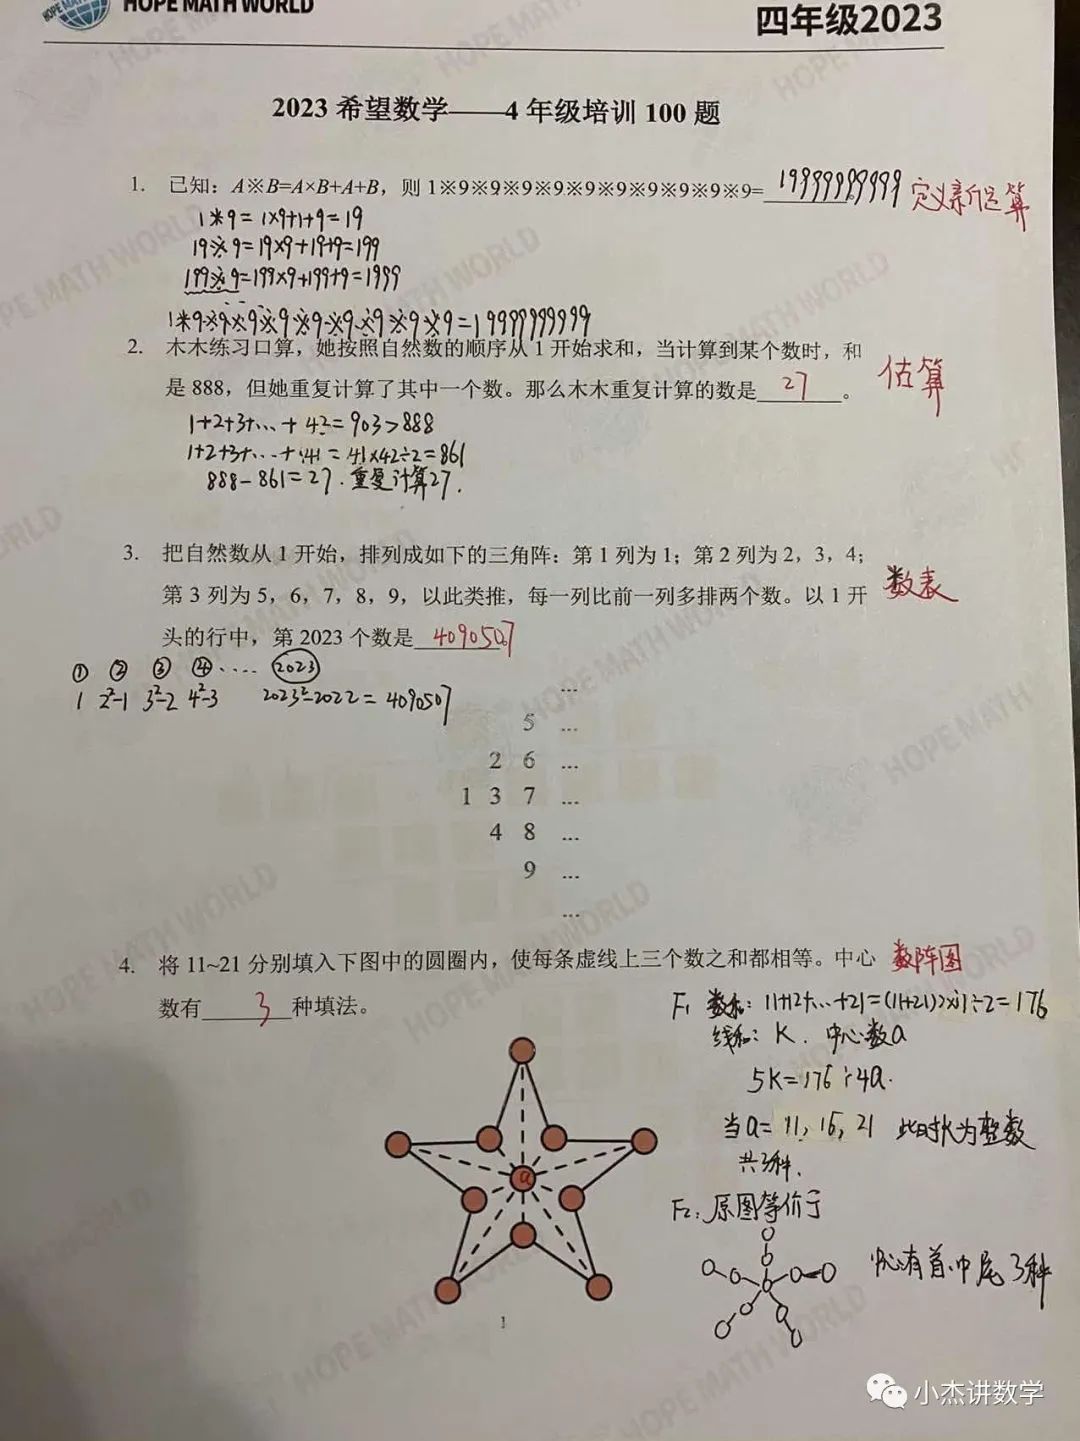 HOPE MATH WORLD
四年级2023
2023 希望数学——4 年级培训 100 题
1. 已知：A※B=A×B+A+B，则 1※9※9※9※9※9※9※9※9※9※9= 19999999999 。 定义新运算
1※9=1×9+1+9=19
19※9=19×9+19+9=199
199※9=199×9+199+9=1999
2. 木木练习口算，她按照自然数的顺序从 1 开始求和，当计算到某个数时，和
是 888，但她重复计算了其中一个数。那么木木重复计算的数是 27 。 估算
1+2+3+…+42=903>888
1+2+3+…+41=41×42÷2=861
888-861=27.重复计算27.
3. 把自然数从 1 开始，排列成如下的三角阵：第 1 列为 1；第 2 列为 2，3，4；
第 3 列为 5，6，7，8，9，以此类推，每一列比前一列多排两个数。以 1 开 数表
头的行中，第 2023 个数是 4090507
① ② ③ ④ ‥‥ 2023
1 2²-1 3²-2 4²-3 2023²-2022=4090507
...
5 ...
2 6 ...
1 3 7 ...
4 8 ...
9 ...
...
4. 将 11~21 分别填入下图中的圆圈内，使每条虚线上三个数之和都相等。中心 数阵图
数有 3 种填法。
F₁ 数和：11+12+…+21=(11+21)×11÷2=176
线和：K. 中心数a
5K=176+4a.
当a=11，16，21 此时K为整数
共3种.
a
F₂：原图等价于
中心有首中尾3种
1
小杰讲数学